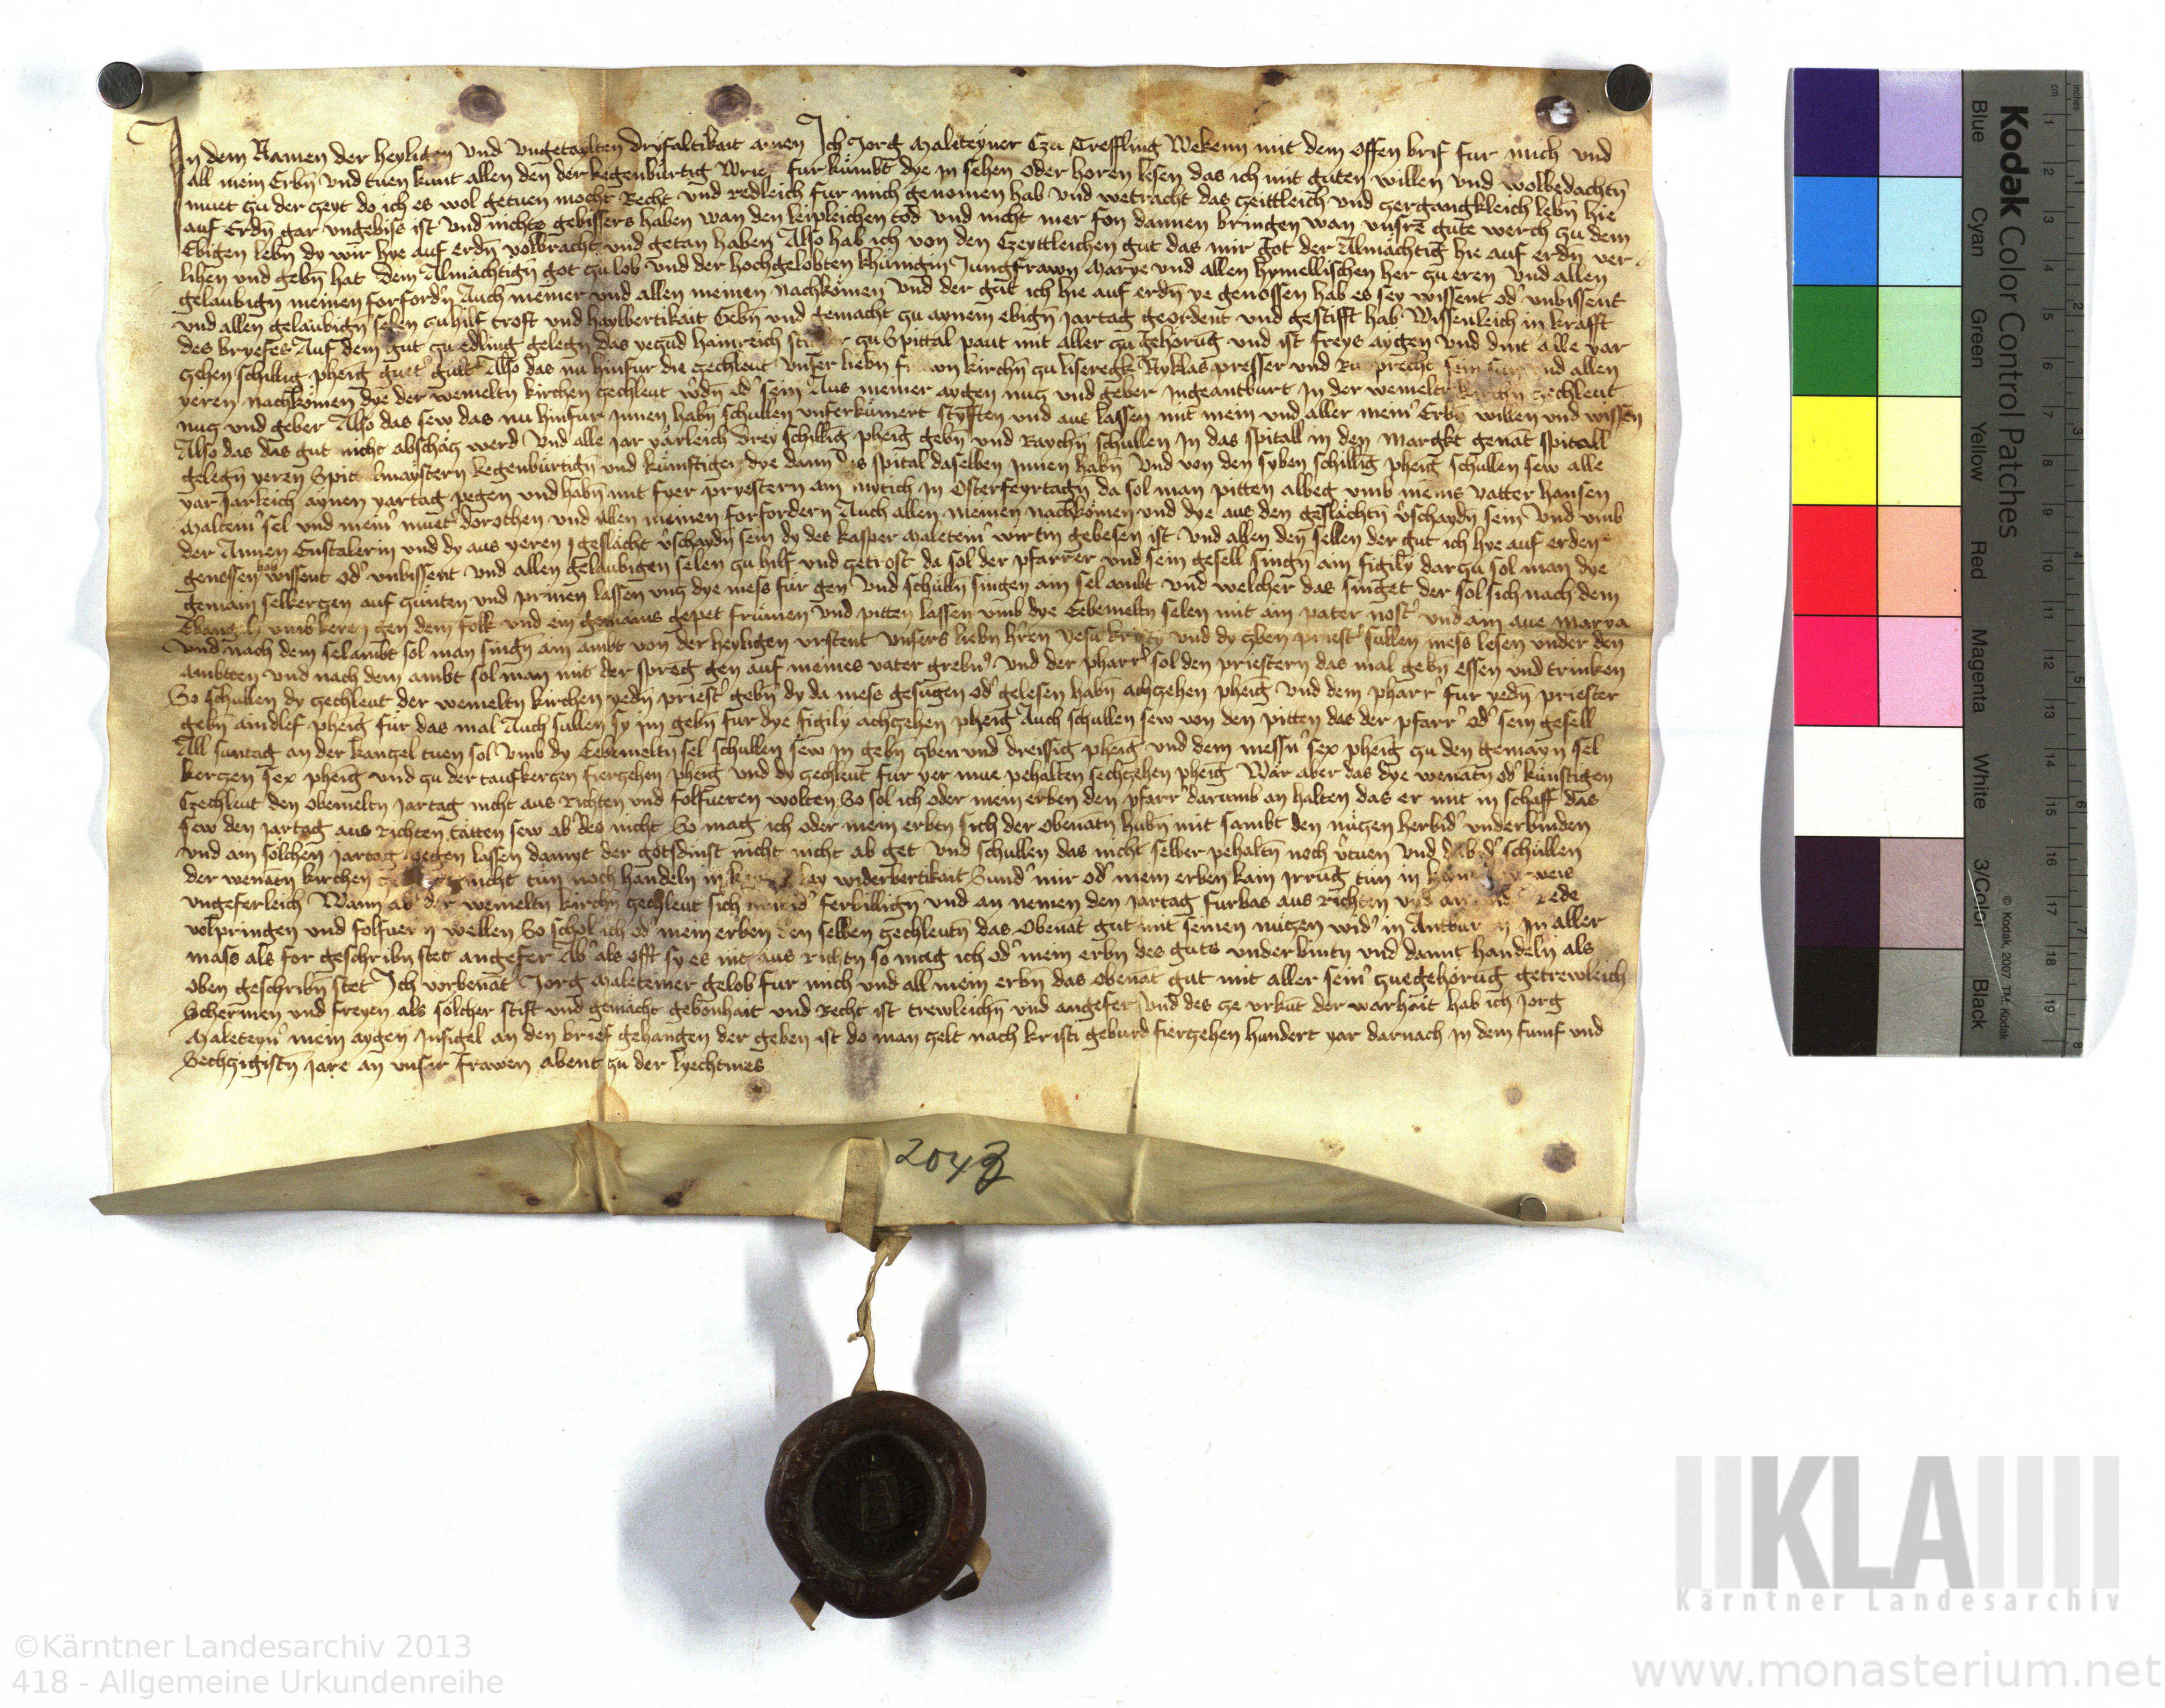 In dem Namen der heyligen vnd vngetaylten dryfaltikait amen Ich Jorg Maleteyner Czu Treffling Wekenn mit dem offen brif fur mich vnd
all mein Erbn̄ vnd tuen kunt allen den der kegenbürtig Wrief furkümbt dye in sehen oder horen lesen das ich mit guten willen vnd wolbedachtn̄
muet zu der zeyt do ich es wol getuen mocht Recht vnd redleich fur mich genomen hab vnd wetracht das zeittleich vnd zergangkleich lebn̄ hie
auf Erdn̄ gar vngebiss ist vnd nichts gebissers haben wan den leipleichen tod vnd nicht mer fon dannen bringen wan vnsre gute werch zu dem
Ebigen lebn̄ dy wir hye auf erdn̄ volbracht vnd getan haben Also hab ich von den Czeyttleichen gut das mir got der Almächtig hie auf erdn̄ ver
lihen vnd gebn̄ hat dem Almächtign̄ got zu lob vnd der hochgelobten khünigin Jungfrawn Marye vnd allen hymellischen her zu eren vnd allen
gelaubign̄ meinen forfordn̄ Auch meiner vnd allen meinen nachkömen vnd der gut ich hie auf erdn̄ ye genossen hab es sey wissent od' vnbissent
vnd allen gelaubign̄ selen zu hilf trost vnd haylbertikait Gebn̄ vnd gemacht zu aynem ebign̄ Jartag geordent vnd gestifft hab Wissenleich in krafft
des bryefes Auf dem gut zu edling gelegn̄ das yeczud hainreich zu Spittal paut mit aller zu gehorūg vnd ist freys aygen vnd dint alle yar
zehen schillig phenig guet' gült Also das nu hinfur die zechleut vnser liebn̄ kirchn̄ zu liseregk Nyklas presser vnd allen
yeren nachkömen dye der wemeltn̄ kirchen zechleut w'dn̄ od' sein Aus meiner aygen nucz vnd geber Ingeantburt In der wemeltn̄ zechleut
nucz vnd geber Also das sew das nu hinfur Innen habn̄ schullen vnferkümert styfften vnd aus lassen mit mein vnd aller mein' Erbn̄ willen vnd wissen
Also das das gut nicht abschäcz werd vnd alle Jar yärleich drey schillig phenig gebn̄ vnd Raychn̄ schullen In das spitall in den Margkt genāt spitall
gelegn̄ yeren Spittelmaystern kegenbürtign̄ vnd künftigen dye dann das spital daselben Innen habn̄ vnd von den syben schillig phenig schullen sew alle
yar Jarleich aynen yartag pegen vnd habn̄ mit fyer pryestern am mytich In Osterfeyrtagn̄ da sol man pitten albeg vmb meins vatter hansen
Maltein' sel vnd mein' muet' dorothen vnd allen meinen forfordern Auch allen meinen nachkömen vnd dye aus den geslächtn̄ v'schaydn̄ sein vnd vmb
der Annen vnd dy aus yeren geslächt v'schaydn̄ sein dy des kasper Maletein' wirtin gebesen ist vnd allen den sellen der gut ich hye auf erden
genossen hab wissent od' vnbissent vnd allen gelaubigen selen zu hilf vnd getrost da sol der pfarrer vnd sein gesell singn̄ ain figily darzu sol man dye
gemain selkerzen auf zünten vnd prinen lassen vncz dye mess für gen vnd schülln̄ singen ain sel ambt vnd welcher das singet der sol sich nach dem
Ebangely vmb keren gen dem folk vnd ein gemains gepet frümen vnd pitten lassen vmb dye Eebemeltn̄ selen mit aim pater nost' vnd aim aue marya
vnd nach dem selambt sol man singn̄ ain ambt von der heyligen vrstent vnsers liebn̄ h'ren yesu kristy vnd dy zben priest' sullen mess lesen vnder den
ambtten vnd nach dem ambt sol man mit der spreng gen auf meines vater grebn' vnd der pharr' sol den priestern das mal gebn̄ essen vnd trinken
So schullen dy zechleut der wemeltn̄ kirchen yedn̄ priest' gebn̄ dy da mess gesungen od' gelesen habn̄ achzehen phenig vnd dem pharr' fur yedn̄ priester
gebn̄ aindlef phenig für das mal Auch sullen sy im gebn̄ fur dye figily achzehen phenig Auch schullen sew von den pitten das der pfarr' od' sein gesell
All suntag an der kanzel tuen sol vmb dy Eebemeltn̄ sel schullen sew In gebn̄ zben vnd dreissig phenig vnd dem messn' sex phenig zu den gemayn̄ sel
kerzen sex phenig vnd zu der taufkerzen fierzehen phenig vnd dy zechleut fur yer mue pehalten sechzehen phenig Wär aber das dye wenātn̄ od' künftigen
Czechleut den obemeltn̄ Jartag nicht aus Richten vnd folfüeren wolten So sol ich oder mein erben den pfarr' darumb an halten das er mit in schaff das
sew den Jartag aus richten tätten sew ab' des nicht So mag ich oder mein erbn̄ sich der obenātn̄ hubn̄ mit sambt den nüczen herbid' vnderbinden
vnd ain sölchen Jartag pegen lassen damyt der gotsdinst nicht nicht ab get vnd schullen das nicht selber pehaltn̄ noch v'tuen vnd schullen
der wenātn̄ kirchen nicht tun noch handeln in widerbertikait Sund' mir od' mein erben kain Irrūg tun in weis
vngeferleich Wann ab' der wemeltn̄ kirchn̄ zechleut sich ferbillign̄ vnd an nemen den Jartag furbas aus richten vnd an rede
volpringen vnd folfuern wellen So schol ich od' mein erben den selben zechleutn̄ das obenāt gut mit seinen nüczen wid' in Antburtn̄ In aller
mass als for geschribn̄ stet angefer Ab' als offt sy es nit aus richtn̄ so mag ich od' mein erbn̄ des guts vnderbintn̄ vnd damit handeln als
oben geschribn̄ stet Ich vorbenāt Jorg Maleteiner gelob fur mich vnd all mein erbn̄ das obenāt gut mit aller sein' zuegehörūg getrewleich
Schermen vnd freyen als sölcher stift vnd gemächt gebonhait vnd Recht ist trewleichn̄ vnd angefer Vnd des ze vrkūt der warhait hab ich Jorg
Maleteyn' mein aygen Insigel an den brief gehangen der geben ist do man zelt nach kristi geburd fierzehen hundert yar darnach In dem fumf vnd
Sechzigistn̄ Jare an vnser Frawen abent zu der lyechtmes
2043
Kodak Color Control Patches
Blue Cyan Green Yellow Red Magenta White 3/Color Black
© Kodak, 2007 TM: Kodak
cm 1 2 3 4 5 6 7 8 9 10 11 12 13 14 15 16 17 18 19
inches 1 2 3 4 5 6 7 8
KLA
Kärntner Landesarchiv
©Kärntner Landesarchiv 2013
418 - Allgemeine Urkundenreihe
www.monasterium.net